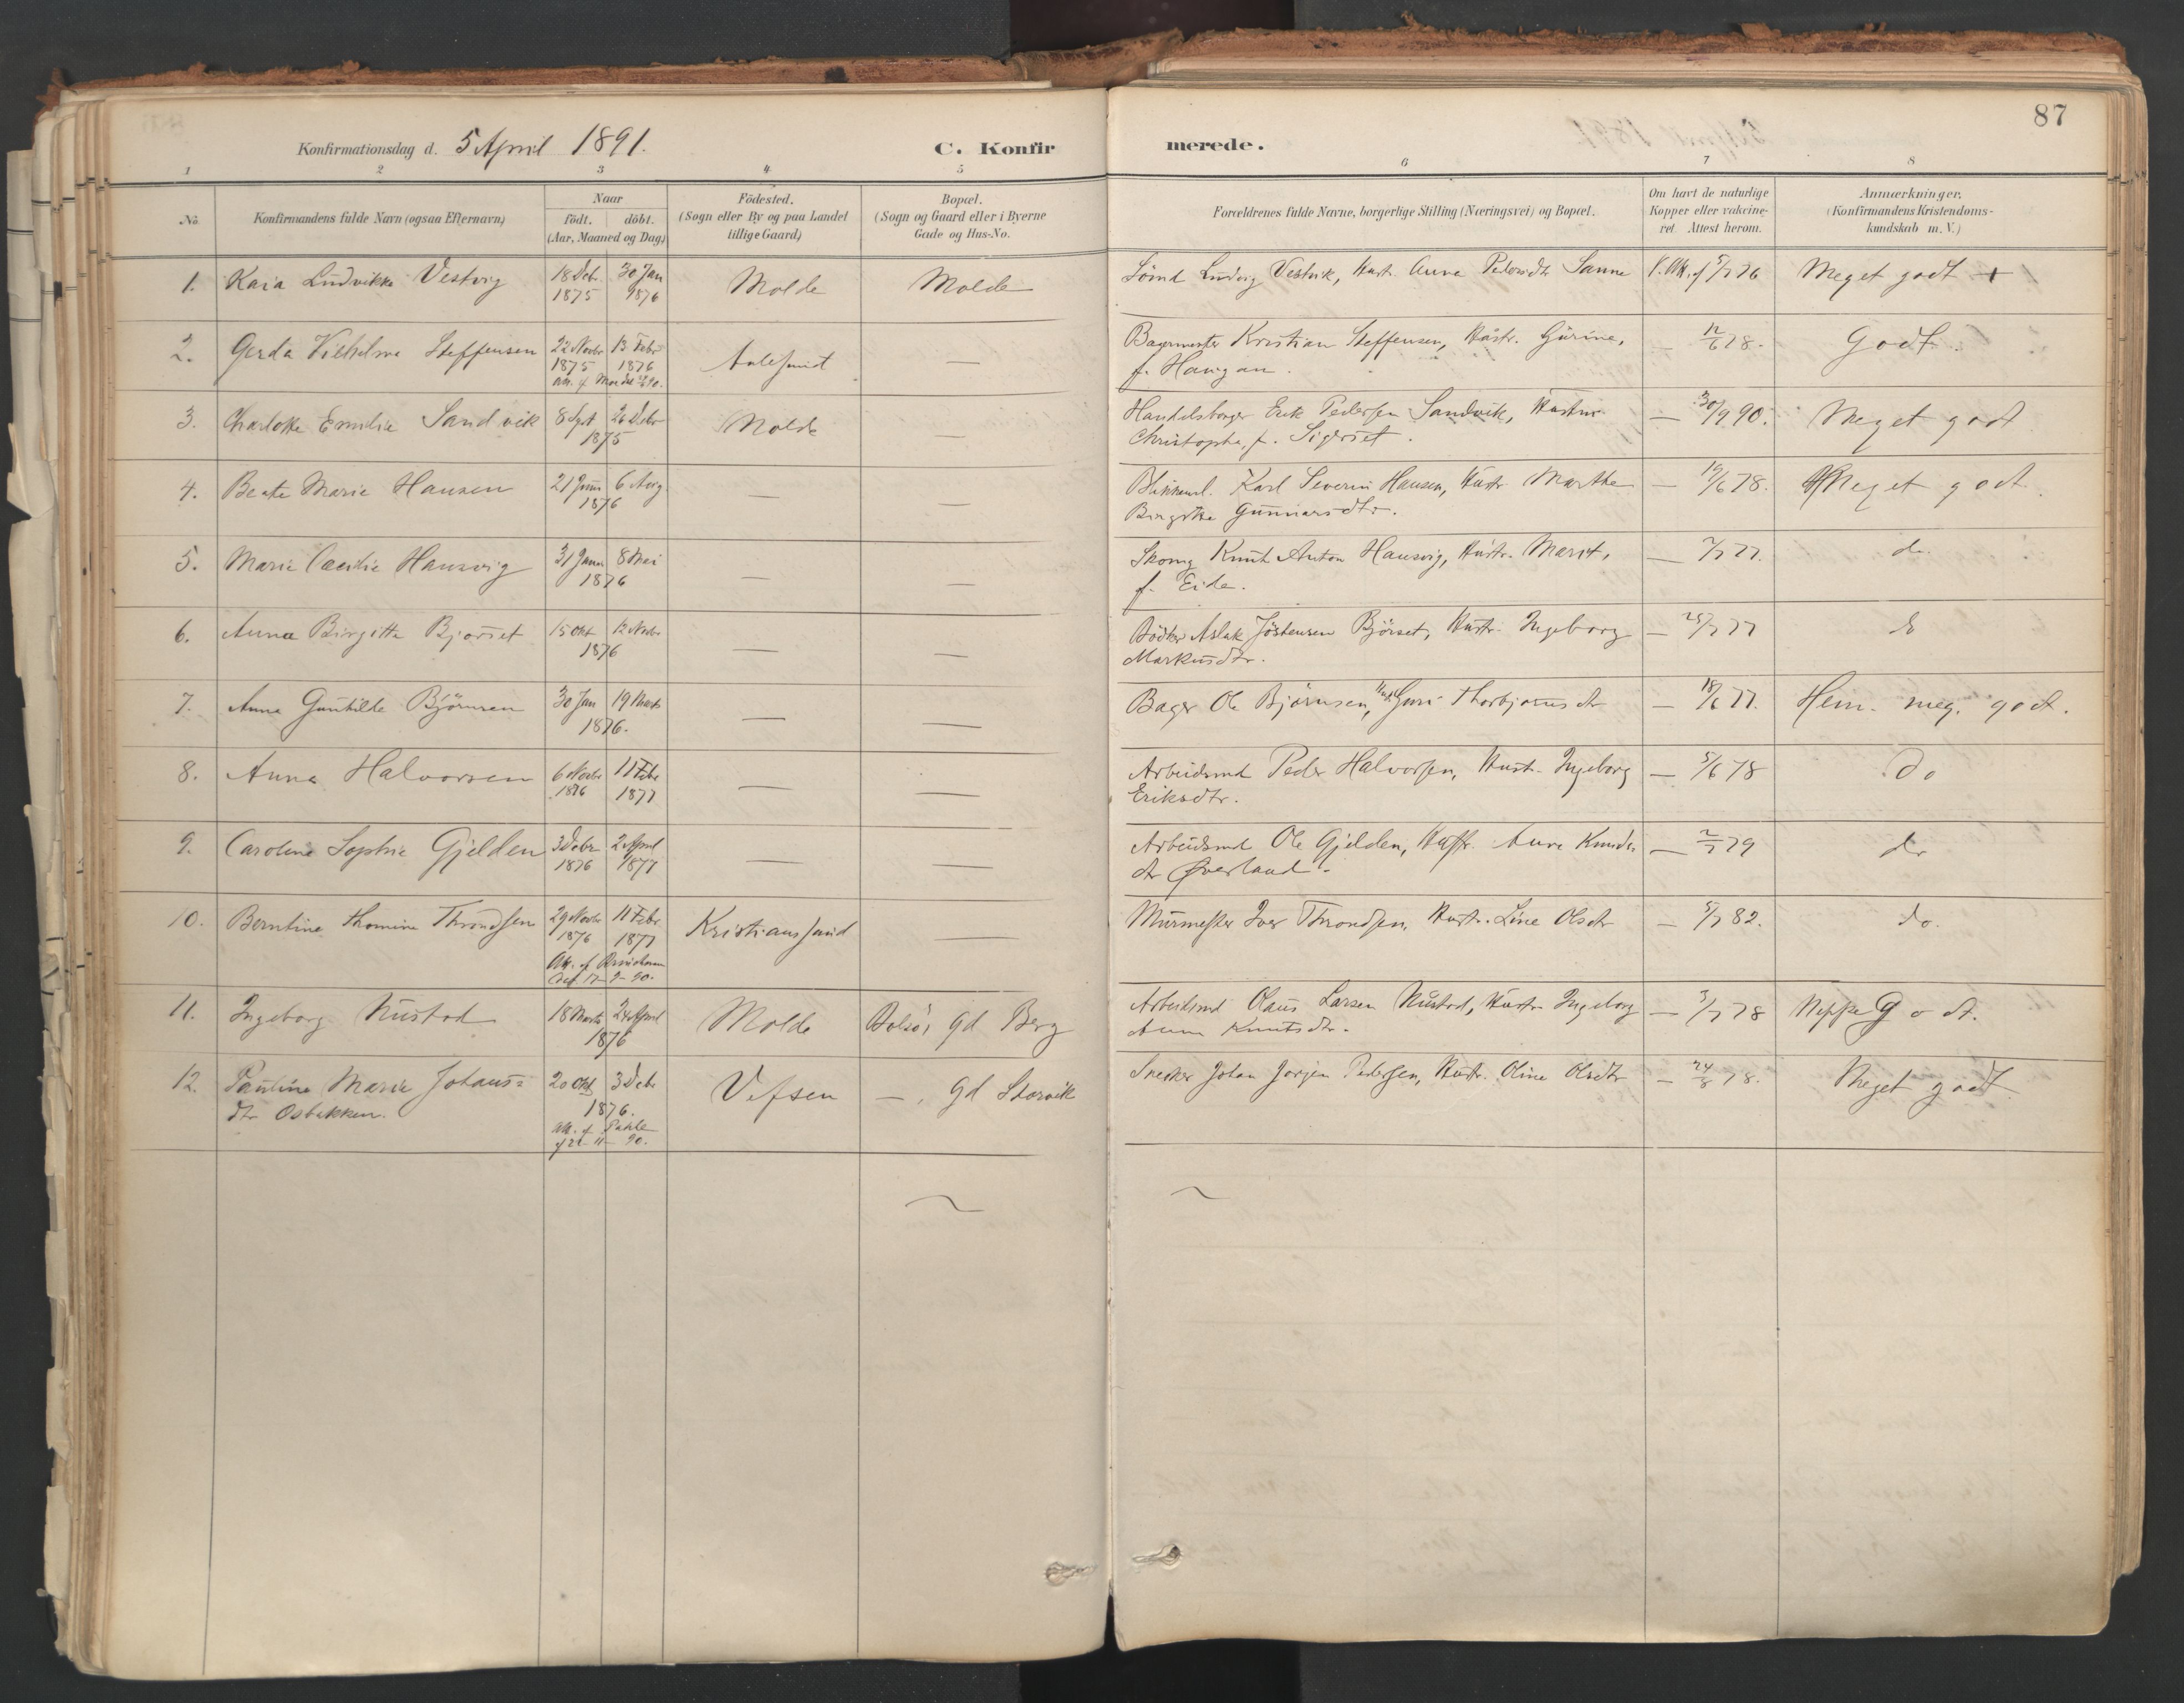 87
Konfirmationsdag d. 5 April 1891.
C. Konfirmerede.
1 2 3 4 5 6 7 8
No. Konfirmandens fulde Navn (ogsaa Efternavn)
Naar
födt. döbt.
(Aar, Maaned og Dag)
Födested.
(Sogn eller By og paa Landet
tillige Gaard)
Bopæl.
(Sogn og Gaard eller i Byerne
Gade og Hus-No.
Forældrenes fulde Navne, borgerlige Stilling (Næringsvei) og Bopæl.
Om havt de naturlige
Kopper eller vakcine-
ret. Attest herom.
Anmærkninger.
(Konfirmandens Kristendoms-
kundskab m. V.)
1. Kaia Ludvikka Vestvig 18 Debr 30 Jan Molde Molde Sömd Ludvig Vestvik, Hustr. Anne Pedersdtr Sanne 5/7 76 Meget godt +
1875 1876
2. Gerda Vilhelma Steffensen 22 Novbr 13 Febr Aalesund — Bagermester Kristian Steffensen, Hustr. Gurine, — 12/6 78. Godt.
1875 1876 f. Haugan.
3. Charlotte Emilie Sandvik 8 Sept 26 Debr Molde — Handelsborger Erik Pedersen Sandvik, Hustru — 30/9 90. Meget godt
1875 Christophe, f.
4. Beate Marie Hansen 21 Juni 6 Aug — — Karl Severin Hansen, Hustr Marthe — 19/6 78. Meget godt.
1876 Birgitte Gunnarsdtr.
5. Marie Cacilie Hausvig 31 Janr 8 Mai — — Skomg Knut Anton Hausvig, Hustr. Marit, — 7/7 77. do
1876 f. Eide.
6. Anna Birgitte Bjørset 15 Okt 12 Novbr — — Bödker Aslak Jöstensen Björset, Hustr. Ingeborg — 25/7 77 do
1876 Markusdtr.
7. Anna Gunhilde Björnsen 30 Jan 19 Marts — — Bager Ole Bjørnsen, Hustr Guri Thorbjørnsdtr — 18/6 77. Hem. meg. godt.
1876.
8. Anna Halvorsen 6 Novbr 11 Febr — — Arbeidsmd Peder Halvorsen, Hustr. Ingeborg — 5/6 78 Do
1876 1877 Eriksdtr.
9. Caroline Sophie Gjelden 3 Debr 2 April — — Arbeidsmd Ole Gjelden, Hustr. Anne Knuds- — 2/7 79 do
1876 1877 dtr Øverland.
10. Berntine Thomine Throndsen 29 Novbr 11 Febr Kristiansund — Murmester Iver Throndsen, Hustr. Line Olsdtr — 5/7 82. do.
1876 1877
11. Ingeborg Nustad 18 Marts 24 April Molde Bolsö, Gd Berg Arbeidsmd Olaus Larsen Nustad, Hustr. Ingeborg — 3/7 78 Neppe Godt.
1876 Anne Knutsdtr.
12. Pauline Marie Johans- 20 Okt 3 Debr Vefsen —, Gd Storvik Snekker Johan Jørgen Pedersen, Hustr. Oline Olsdtr — 24/8 78. Meget godt
dtr Osbakken. 1876.